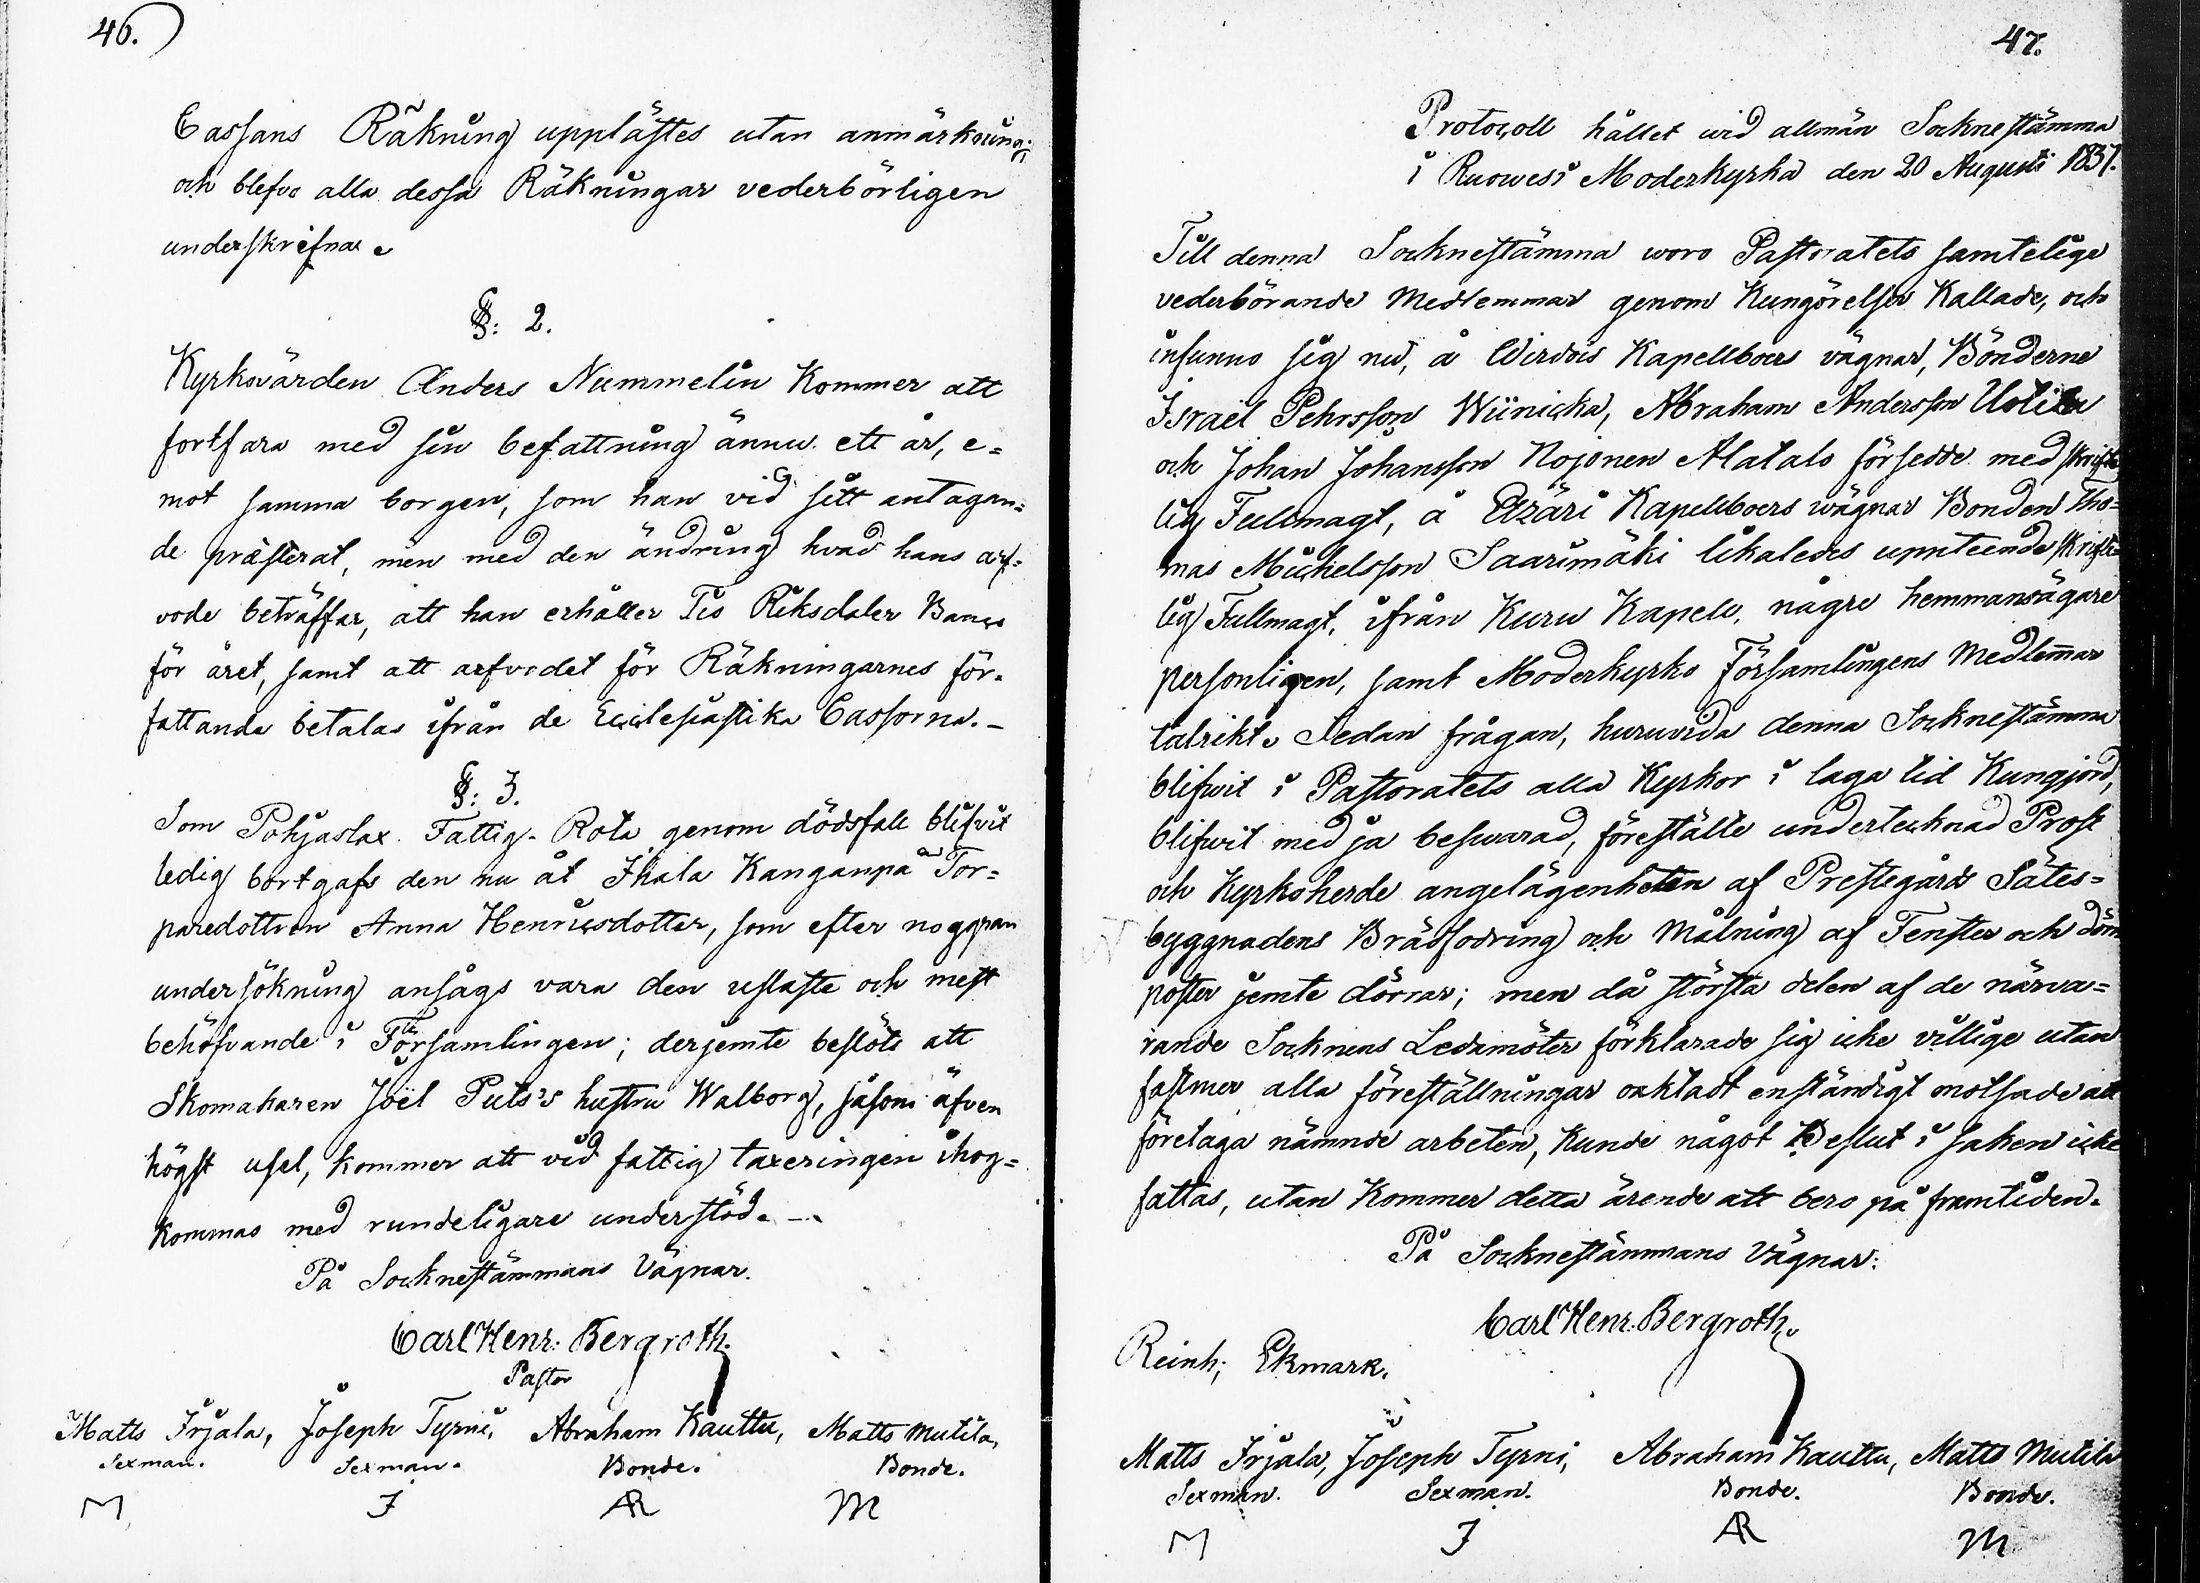 46.
Cassans Räkning upplästes utan anmärkning;
och blefvo alla dessa Räkningar vederbörligen
underskrifna.
§: 2.
Kyrkovärden Anders Nummelin kommer att
fortfara med sin befattning ännu ett år, e=
mot samma borgen, som han vid sitt antagan=
de præsterat, men med den ändring hvad hans arf=
vode beträffar, att han erhåller Tio Riksdaler Banco
för året, samt att arfvodet för Räkningarnes för=
fattande betalas ifrån de Ecclesiastika Cassorna. –
§: 3.
Som Pohjaslax Fattig-Rota genom dödsfall blifvit
ledig bortgafs den nu åt Ihala Kanganpää Tor=
paredottren Anna Henricsdotter, som efter noggran
undersökning ansågs vara den uslaste och mest
behöfvande i Församlingen; derjemte beslöts att
Skomakaren Joël Puts's hustru Walborg, såsom äfven
högst usel, kommer att vid fattig taxeringen ihog=
kommas med rundeligare understöd. –
På Socknestämmans Vägnar.
Carl Henr: Bergroth.
Pastor
Matts Irjala, Joseph Tyrni, Abraham Kauttu, Matts Mutila,
Sexman. Sexman. Bonde. Bonde.
M J AR M
47.
Protocoll hållet wid allmän Socknestämma
i Ruowesi Moderkyrka den 20 Augusti 1837.
Till denna Socknestämma woro Pastoratets samtelige
vederbörande Medlemmar genom Kungörelser Kallade, och
infunno sig nu, å Wirdois Kapellboers vägnar, Bönderne
Israël Pehrsson Wiinicka, Abraham Andersson Uotila
och Johan Johansson Nojonen Alatalo försedde med skrift
lig Fullmagt, å Etzäri Kapellboers wägnar Bonden Tho=
mas Michelsson Saarimäki likaledes uppteende skrift=
lig Fullmagt, ifrån Kuru Kapell, någre hemmansägare
personligen, samt Moderkyrko Församlingens Medlemmar
talrikt. Sedan frågan, huruvida denna Socknestämma
blifwit i Pastoratets alla Kyrkor i laga tid Kungjord,
blifwit med ja beswarad, föreställte undertecknad Prost
och Kyrkoherde angelägenheten af Prestegårds Sätes=
byggnadens Brädfodring och Målning af Fenster och dörr
poster jemte dörrar; men då största delen af de närva=
rande Socknens Ledamöter förklarade sig icke villige utan
fastmer alla föreställningar oaktadt enständigt motsade att
företaga nämnde arbeten, Kunde något Beslut i saken icke
fattas, utan Kommer detta ärende att bero på framtiden.
På Socknestämmans Vägnar:
Carl Henr. Bergroth.
Reinh; Ekmark.
Matts Irjala, Joseph Tyrni, Abraham Kauttu, Matts Mutila
Sexman. Sexman. Bonde. Bonde.
M J AR M